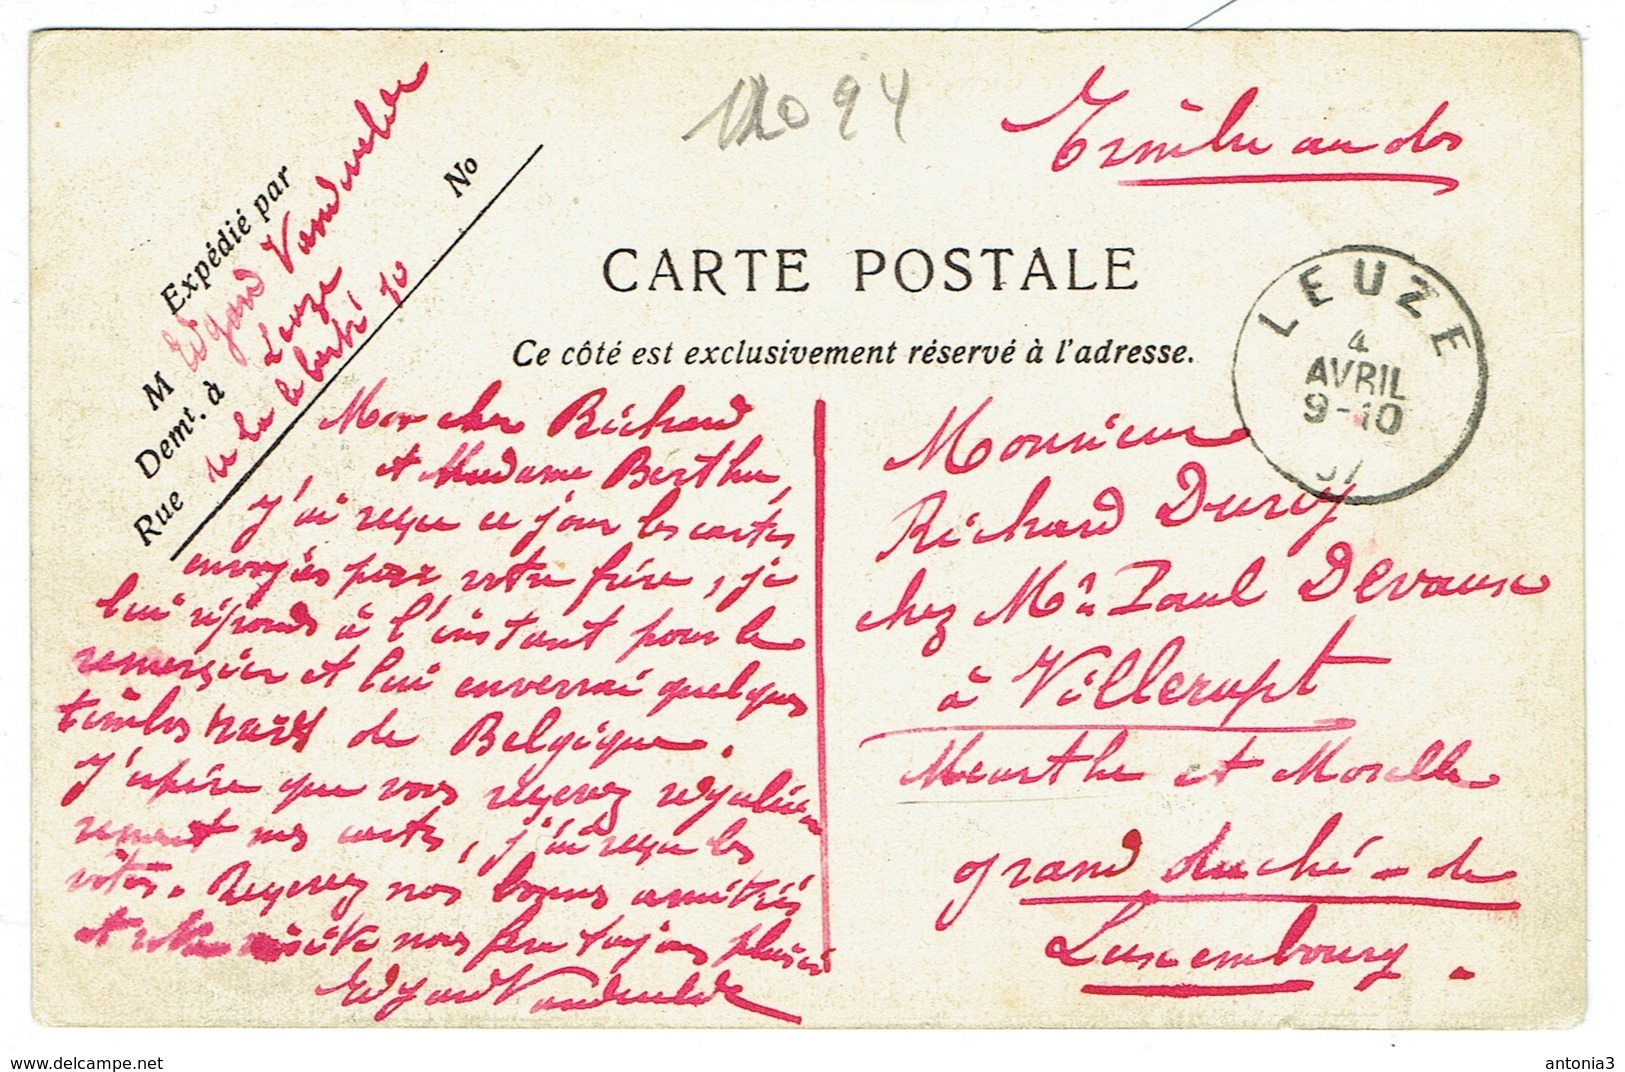 12094
Timbre au dos
Expédié par
M Edgard Vandevelde
Demt. à Leuze
Rue de la liberté 70
No
CARTE POSTALE
Ce côté est exclusivement réservé à l'adresse.
LEUZE
4
AVRIL
9-10
07
Mon cher Richard
et Madame Berthe,
J'ai reçu ce jour les cartes
envoyées pour votre frère, je
lui réponds à l'instant pour le
remercier et lui enverrai quelques
timbres rares de Belgique.
J'espère que vous recevez régulière
rement mes cartes, j'ai reçu les
vôtres. Recevez nos bonnes amitiés
et votre visite nous fera toujours plaisir
Edgard Vandevelde
Monsieur
Richard Durey
chez Mr. Paul Devaux
à Villerupt
Meurthe et Moselle
grand duché - de
Luxembourg.
www.delcampe.net
antonia3